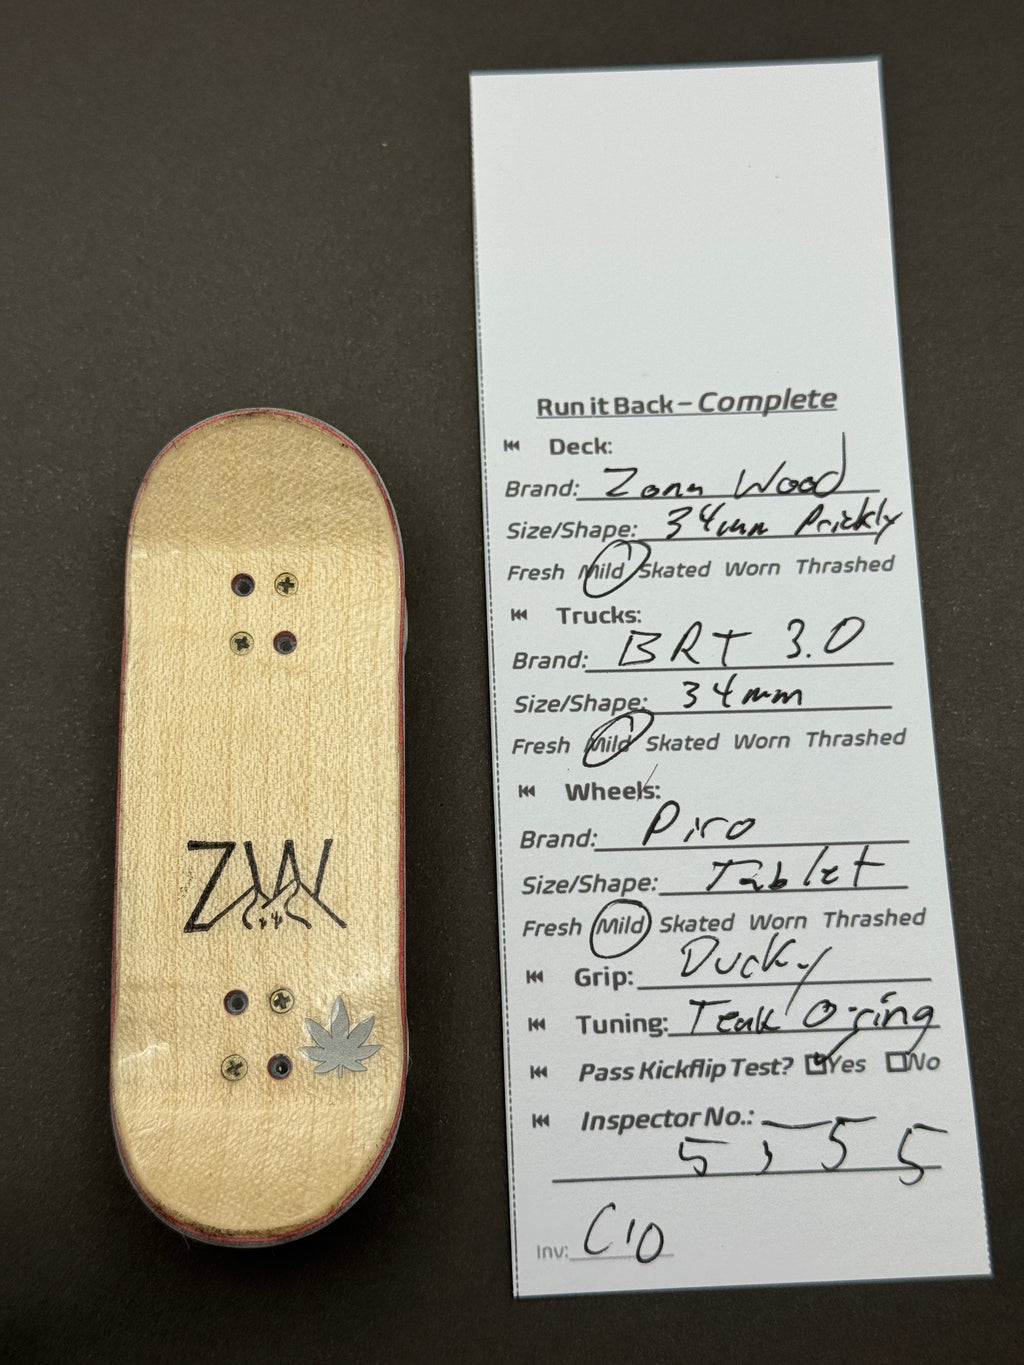 ZW
Run it Back – Complete
Deck:
Brand: Zonn Wood
Size/Shape: 34mm Prickly
Fresh Mild Skated Worn Thrashed
Trucks:
Brand: BRT 3.0
Size/Shape: 34mm
Fresh Mild Skated Worn Thrashed
Wheels:
Brand: Piro
Size/Shape: Tablet
Fresh Mild Skated Worn Thrashed
Grip: Ducky
Tuning: Teak O-ring
Pass Kickflip Test? Yes No
Inspector No.:
5 5 5 5
Inv: C10